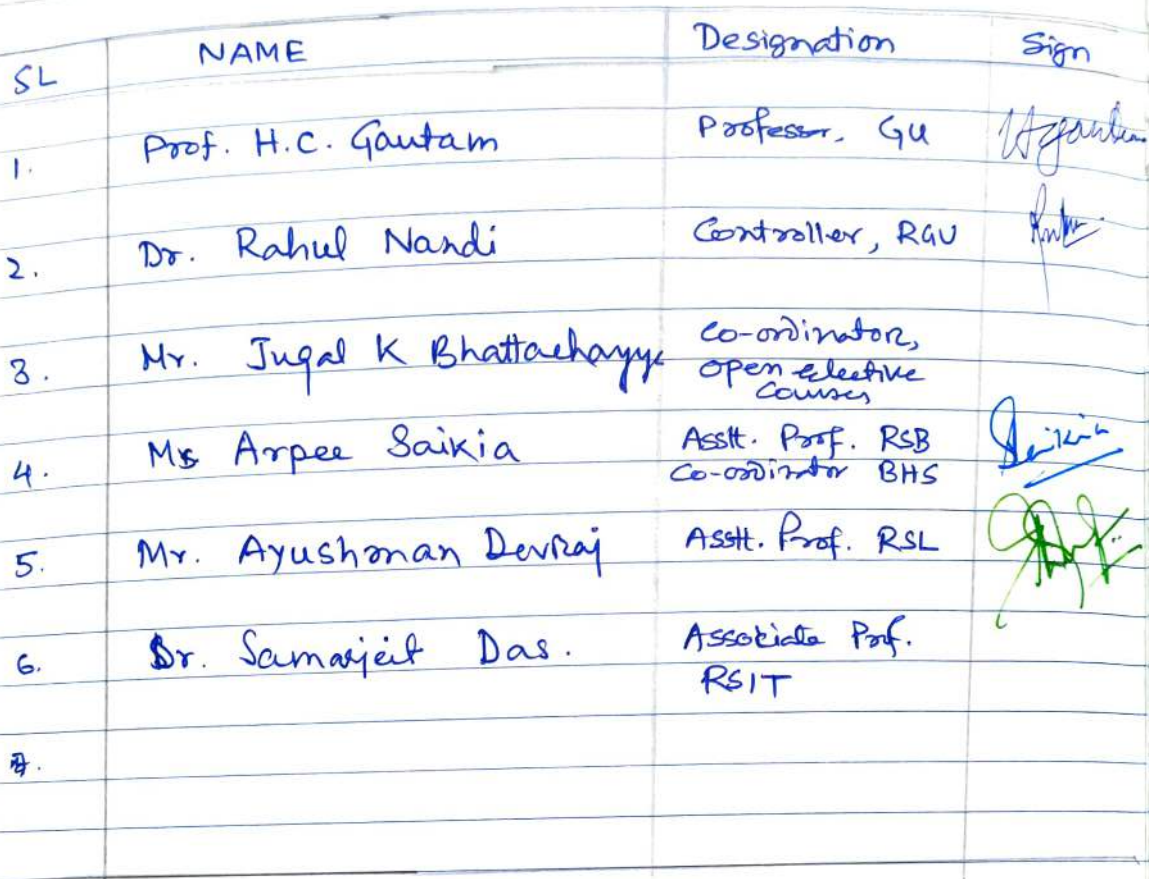 SL NAME Designation Sign
1. Prof. H.C. Gautam Professor, GU Hcgautam
2. Dr. Rahul Nandi Controller, RGU
3. Mr. Jugal K Bhattacharyya Co-ordinator,
open elective
Courses
4. Ms Arpee Saikia Asstt. Prof. RSB Saikia
Co-ordinator BHS
5. Mr. Ayushman Devraj Asstt. Prof. RSL
6. Dr. Samarjeit Das. Associate Prof.
RSIT
7.